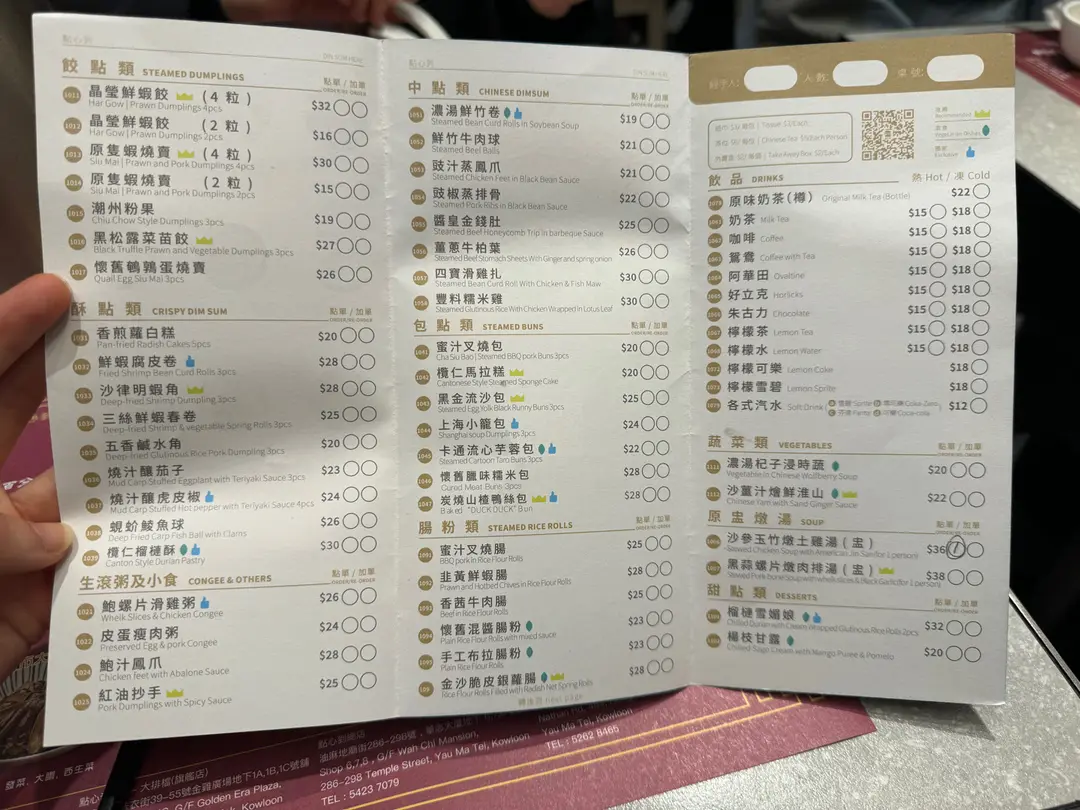 點心到
餃點類 STEAMED DUMPLINGS 點單/加單
ORDER/RE-ORDER
1011 晶瑩鮮蝦餃 (4粒) $32
Har Gow | Prawn Dumplings 4pcs
1012 晶瑩鮮蝦餃 (2粒) $16
Har Gow | Prawn Dumplings 2pcs
1013 原隻蝦燒賣 (4粒) $30
Siu Mai | Prawn and Pork Dumplings 4pcs
1014 原隻蝦燒賣 (2粒) $15
Siu Mai | Prawn and Pork Dumplings 2pcs
1015 潮州粉果 $19
Chiu Chow Style Dumplings 3pcs
1016 黑松露菜苗餃 $27
Black Truffle Prawn and Vegetable Dumplings 3pcs
1017 懷舊鵪鶉蛋燒賣 $26
Quail Egg Siu Mai 3pcs
酥點類 CRISPY DIM SUM 點單/加單
ORDER/RE-ORDER
1031 香煎蘿白糕 $20
Pan-fried Radish Cakes 5pcs
1032 鮮蝦腐皮卷 $28
Fried Shrimp Bean Cord Rolls 3pcs
1033 沙律明蝦角 $28
Deep-fried Shrimp Dumpling 3pcs
1034 三絲鮮蝦春卷 $25
Deep-fried Shrimp & vegetable Spring Rolls 3pcs
1035 五香鹹水角 $20
Deep-fried Glutinous Rice Pork Dumpling 3pcs
1036 燒汁釀茄子 $23
Mud Carp Stuffed Eggplant with Teriyaki Sauce 3pcs
1037 燒汁釀虎皮椒 $24
Mud Carp Stuffed Hot pepper with Teriyaki Sauce 4pcs
1038 蜆蚧鯪魚球 $26
Deep Fried Carp Fish Ball with Clams
1039 欖仁榴槤酥 $30
Canton Style Durian Pastry
生滾粥及小食 CONGEE & OTHERS 點單/加單
ORDER/RE-ORDER
1021 鮑螺片滑雞粥 $26
Whelk Slices & Chicken Congee
1022 皮蛋瘦肉粥 $24
Preserved Egg & pork Congee
1024 鮑汁鳳爪 $28
Chicken feet with Abalone Sauce
1025 紅油抄手 $25
Pork Dumplings with Spicy Sauce
點心到
中點類 CHINESE DIMSUM 點單/加單
ORDER/RE-ORDER
1051 濃湯鮮竹卷 $19
Steamed Bean Curd Rolls in Soybean Soup
1052 鮮竹牛肉球 $21
Steamed Beef Balls
1053 豉汁蒸鳳爪 $21
Steamed Chicken Feet in Black Bean Sauce
1054 豉椒蒸排骨 $22
Steamed Pork Ribs in Black Bean Sauce
1055 醬皇金錢肚 $25
Steamed Beef Honeycomb Tripe in barbeque Sauce
1056 薑蔥牛柏葉 $26
Steamed Beef Stomach Sheets With Ginger and spring onion
1057 四寶滑雞扎 $30
Steamed Bean Curd Roll With Chicken & Fish Maw
1058 豐料糯米雞 $30
Steamed Glutinous Rice With Chicken Wrapped in Lotus Leaf
包點類 STEAMED BUNS 點單/加單
ORDER/RE-ORDER
1041 蜜汁叉燒包 $20
Cha Siu Bao | Steamed BBQ pork Buns 3pcs
1042 欖仁馬拉糕 $20
Cantonese Style Steamed Sponge Cake
1043 黑金流沙包 $25
Steamed Egg Yolk Black Runny Buns 3pcs
1044 上海小籠包 $24
Shanghai soup Dumplings 3pcs
1045 卡通流心芋蓉包 $22
Steamed Cartoon Taro Buns 3pcs
1046 懷舊臘味糯米包 $28
Cured Meat Buns 3pcs
1047 炭燒山楂鴨絲包 $28
Baked "DUCK DUCK" Bun
腸粉類 STEAMED RICE ROLLS 點單/加單
ORDER/RE-ORDER
1091 蜜汁叉燒腸 $25
BBQ pork in Rice Flour Rolls
1092 韭黃鮮蝦腸 $28
Prawn and Hotbed Chives in Rice Flour Rolls
1093 香茜牛肉腸 $25
Beef in Rice Flour Rolls
1094 懷舊混醬腸粉 $23
Plain Rice Flour Rolls with mixed sauce
1095 手工布拉腸粉 $23
Plain Rice Flour Rolls
金沙脆皮銀蘿腸 $28
Rice Flour Rolls Filled with Radish Net Spring Rolls
轉後頁 next page
經手人: 人數: 桌號:
Tissue $2/Each
Chinese Tea $6/Each Person
Takeaway Box $2/Each
Recommended
Exclusive
飲品 DRINKS 熱 Hot / 凍 Cold
原味奶茶(樽) Original Milk Tea (Bottle) $22
奶茶 Milk Tea $15 $18
咖啡 Coffee $15 $18
鴛鴦 Coffee with Tea $15 $18
阿華田 Ovaltine $15 $18
好立克 Horlicks $15 $18
朱古力 Chocolate $15 $18
檸檬茶 Lemon Tea $15 $18
檸檬水 Lemon Water $15 $18
檸檬可樂 Lemon Coke $18
檸檬雪碧 Lemon Sprite $18
各式汽水 Soft Drink $12
蔬菜類 VEGETABLES 點單/加單
ORDER/RE-ORDER
1111 濃湯杞子浸時蔬 $20
Vegetable in Chinese Wolfberry Soup
1112 沙薑汁燴鮮淮山 $22
Chinese Yam with Sand Ginger Sauce
原盅燉湯 SOUP 點單/加單
ORDER/RE-ORDER
沙參玉竹燉土雞湯(盅) $36 1
Stewed Chicken Soup with American Jin San(for 1 person)
黑蒜螺片燉肉排湯(盅) $38
Stewed Pork bone Soup with whelk slices & Black Garlic(for 1 person)
甜點類 DESSERTS 點單/加單
ORDER/RE-ORDER
榴槤雪媚娘 $32
Chilled Durian with Cream Wrapped Glutinous Rice Rolls 2pcs
楊枝甘露 $20
Chilled Sago Cream with Mango Puree & Pomelo
發菜、大園、西生菜
點心
大排檔(旗艦店)
衣街39-55號金雞廣場地下1A,1B,1C號舖
G/F Golden Era Plaza,
Kowloon
點心到總店
油麻地廟街286-298號,華志大廈地下
Shop 6,7,8 , G/F Wah Chi Mansion,
286-298 Temple Street, Yau Ma Tei, Kowloon
TEL : 5423 7079
Yau Ma Tei, Kowloon
TEL : 5262 8465